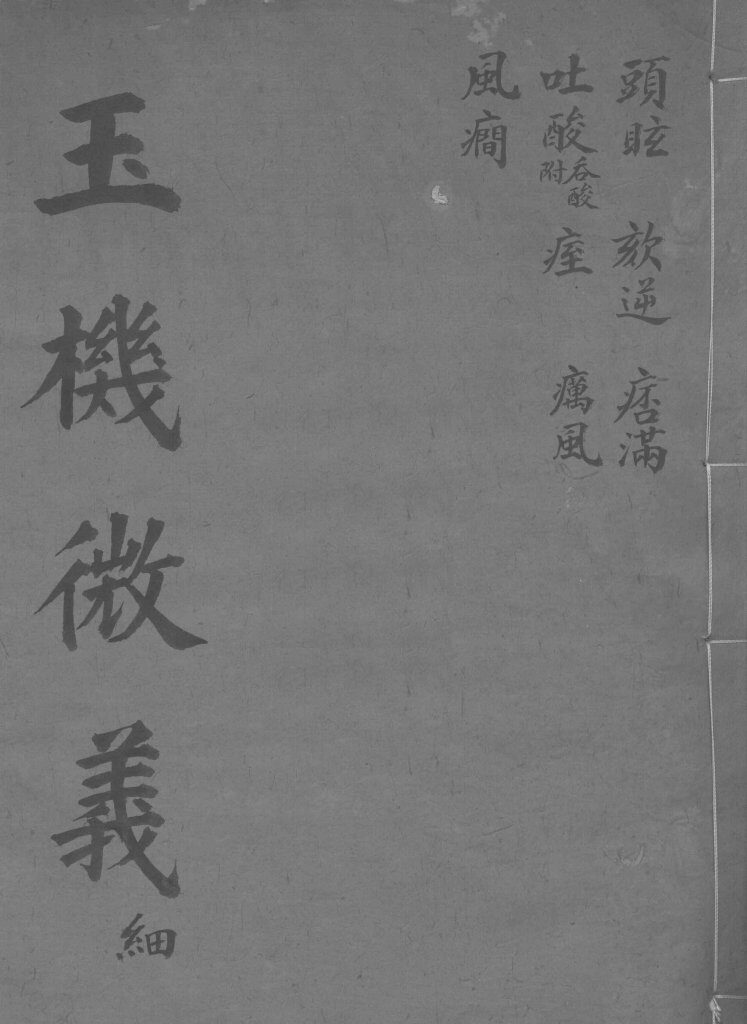 頭眩 欬逆 痞滿
吐酸 吞酸附 痓 癘風
風癇
玉機微義 細